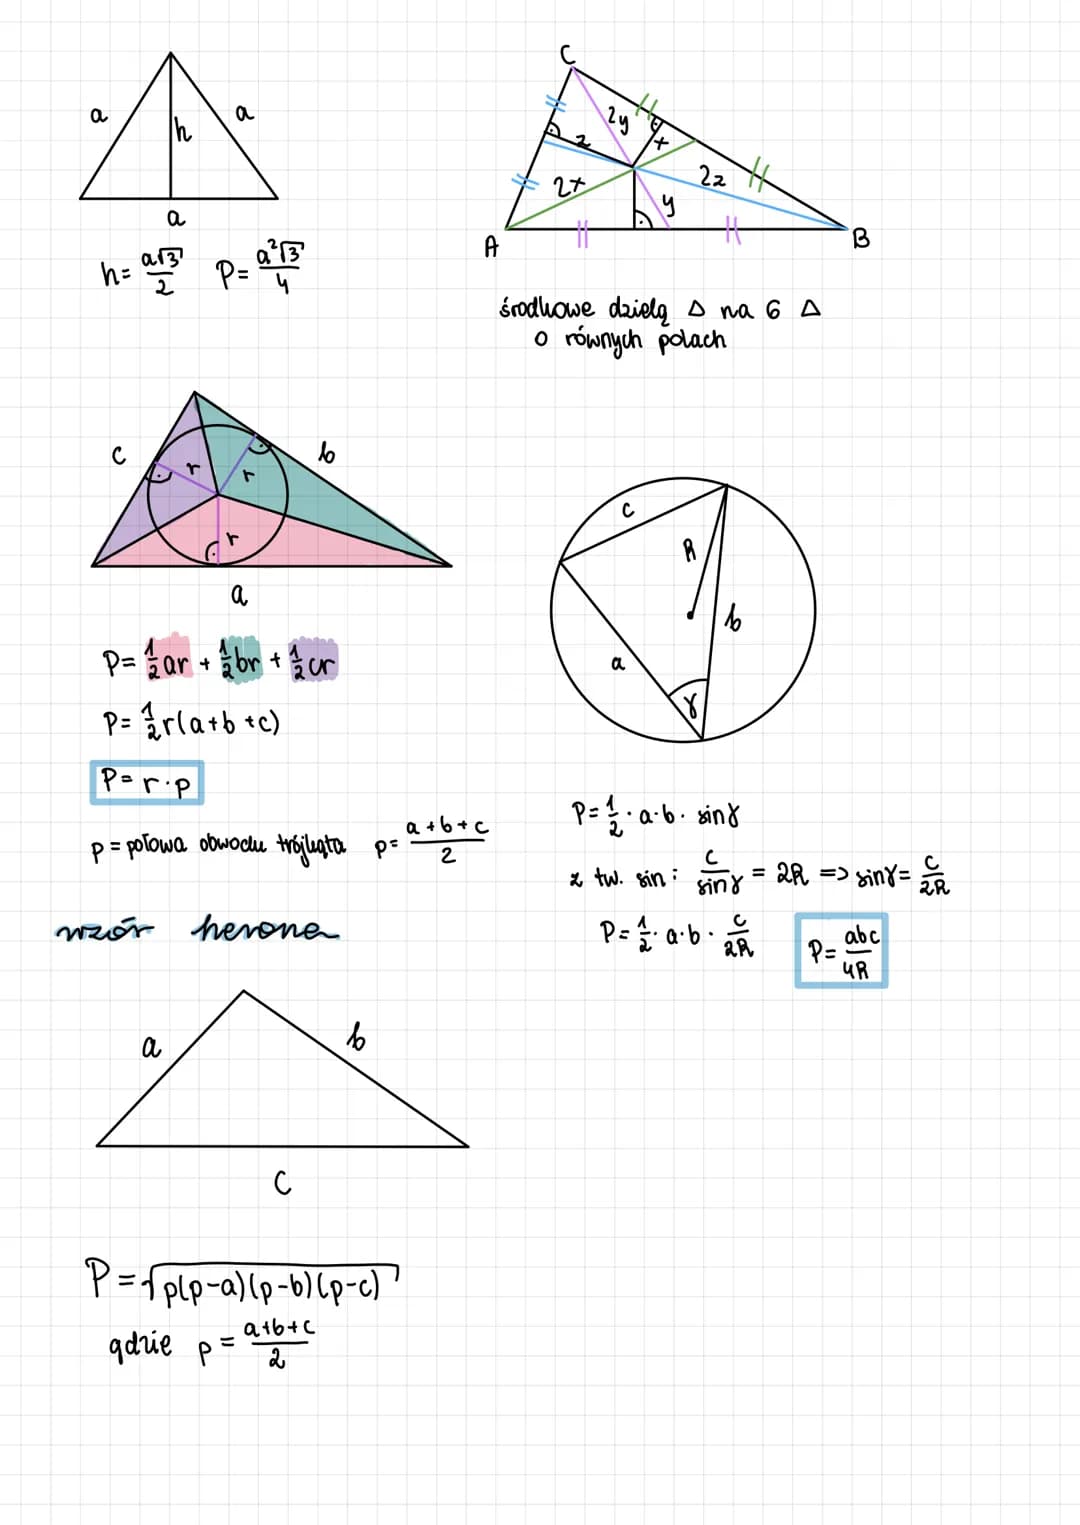 a
h
a
a
h= a√3/2 P= a²√3/4
C
2y
x
z
2x
2z
y
A
B
środkowe dzielą Δ na 6 Δ
o równych polach
c
b
r
r
r
a
P= 1/2 ar + 1/2 br + 1/2 cr
P= 1/2 r(a+b+c)
P= r·p
p = połowa obwodu trójkąta p= a+b+c/2
c
R
b
a
γ
P= 1/2 · a·b· sinγ
z tw. sin: c/sinγ = 2R => sinγ= c/2R
P= 1/2 · a·b · c/2R P= abc/4R
wzór herona
a
b
c
P=√p(p-a)(p-b)(p-c)
gdzie p = a+b+c/2